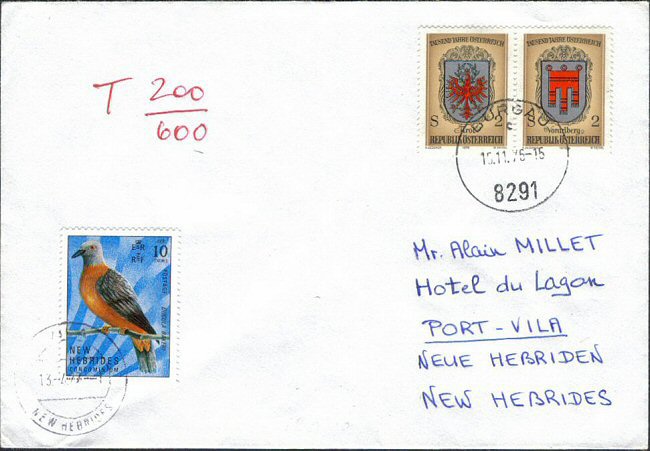 TAUSEND JAHRE ÖSTERREICH
S Tirol 2
REPUBLIK ÖSTERREICH
TAUSEND JAHRE ÖSTERREICH
S Vorarlberg 2
REPUBLIK ÖSTERREICH
BURGAU
c
8291
T 200
600
E II R
RF
10
POSTAGE
NEW
HEBRIDES
CONDOMINIUM
NEW HEBRIDES
Mr. Alain MILLET
Hotel du Lagon
PORT-VILA
NEUE HEBRIDEN
NEW HEBRIDES